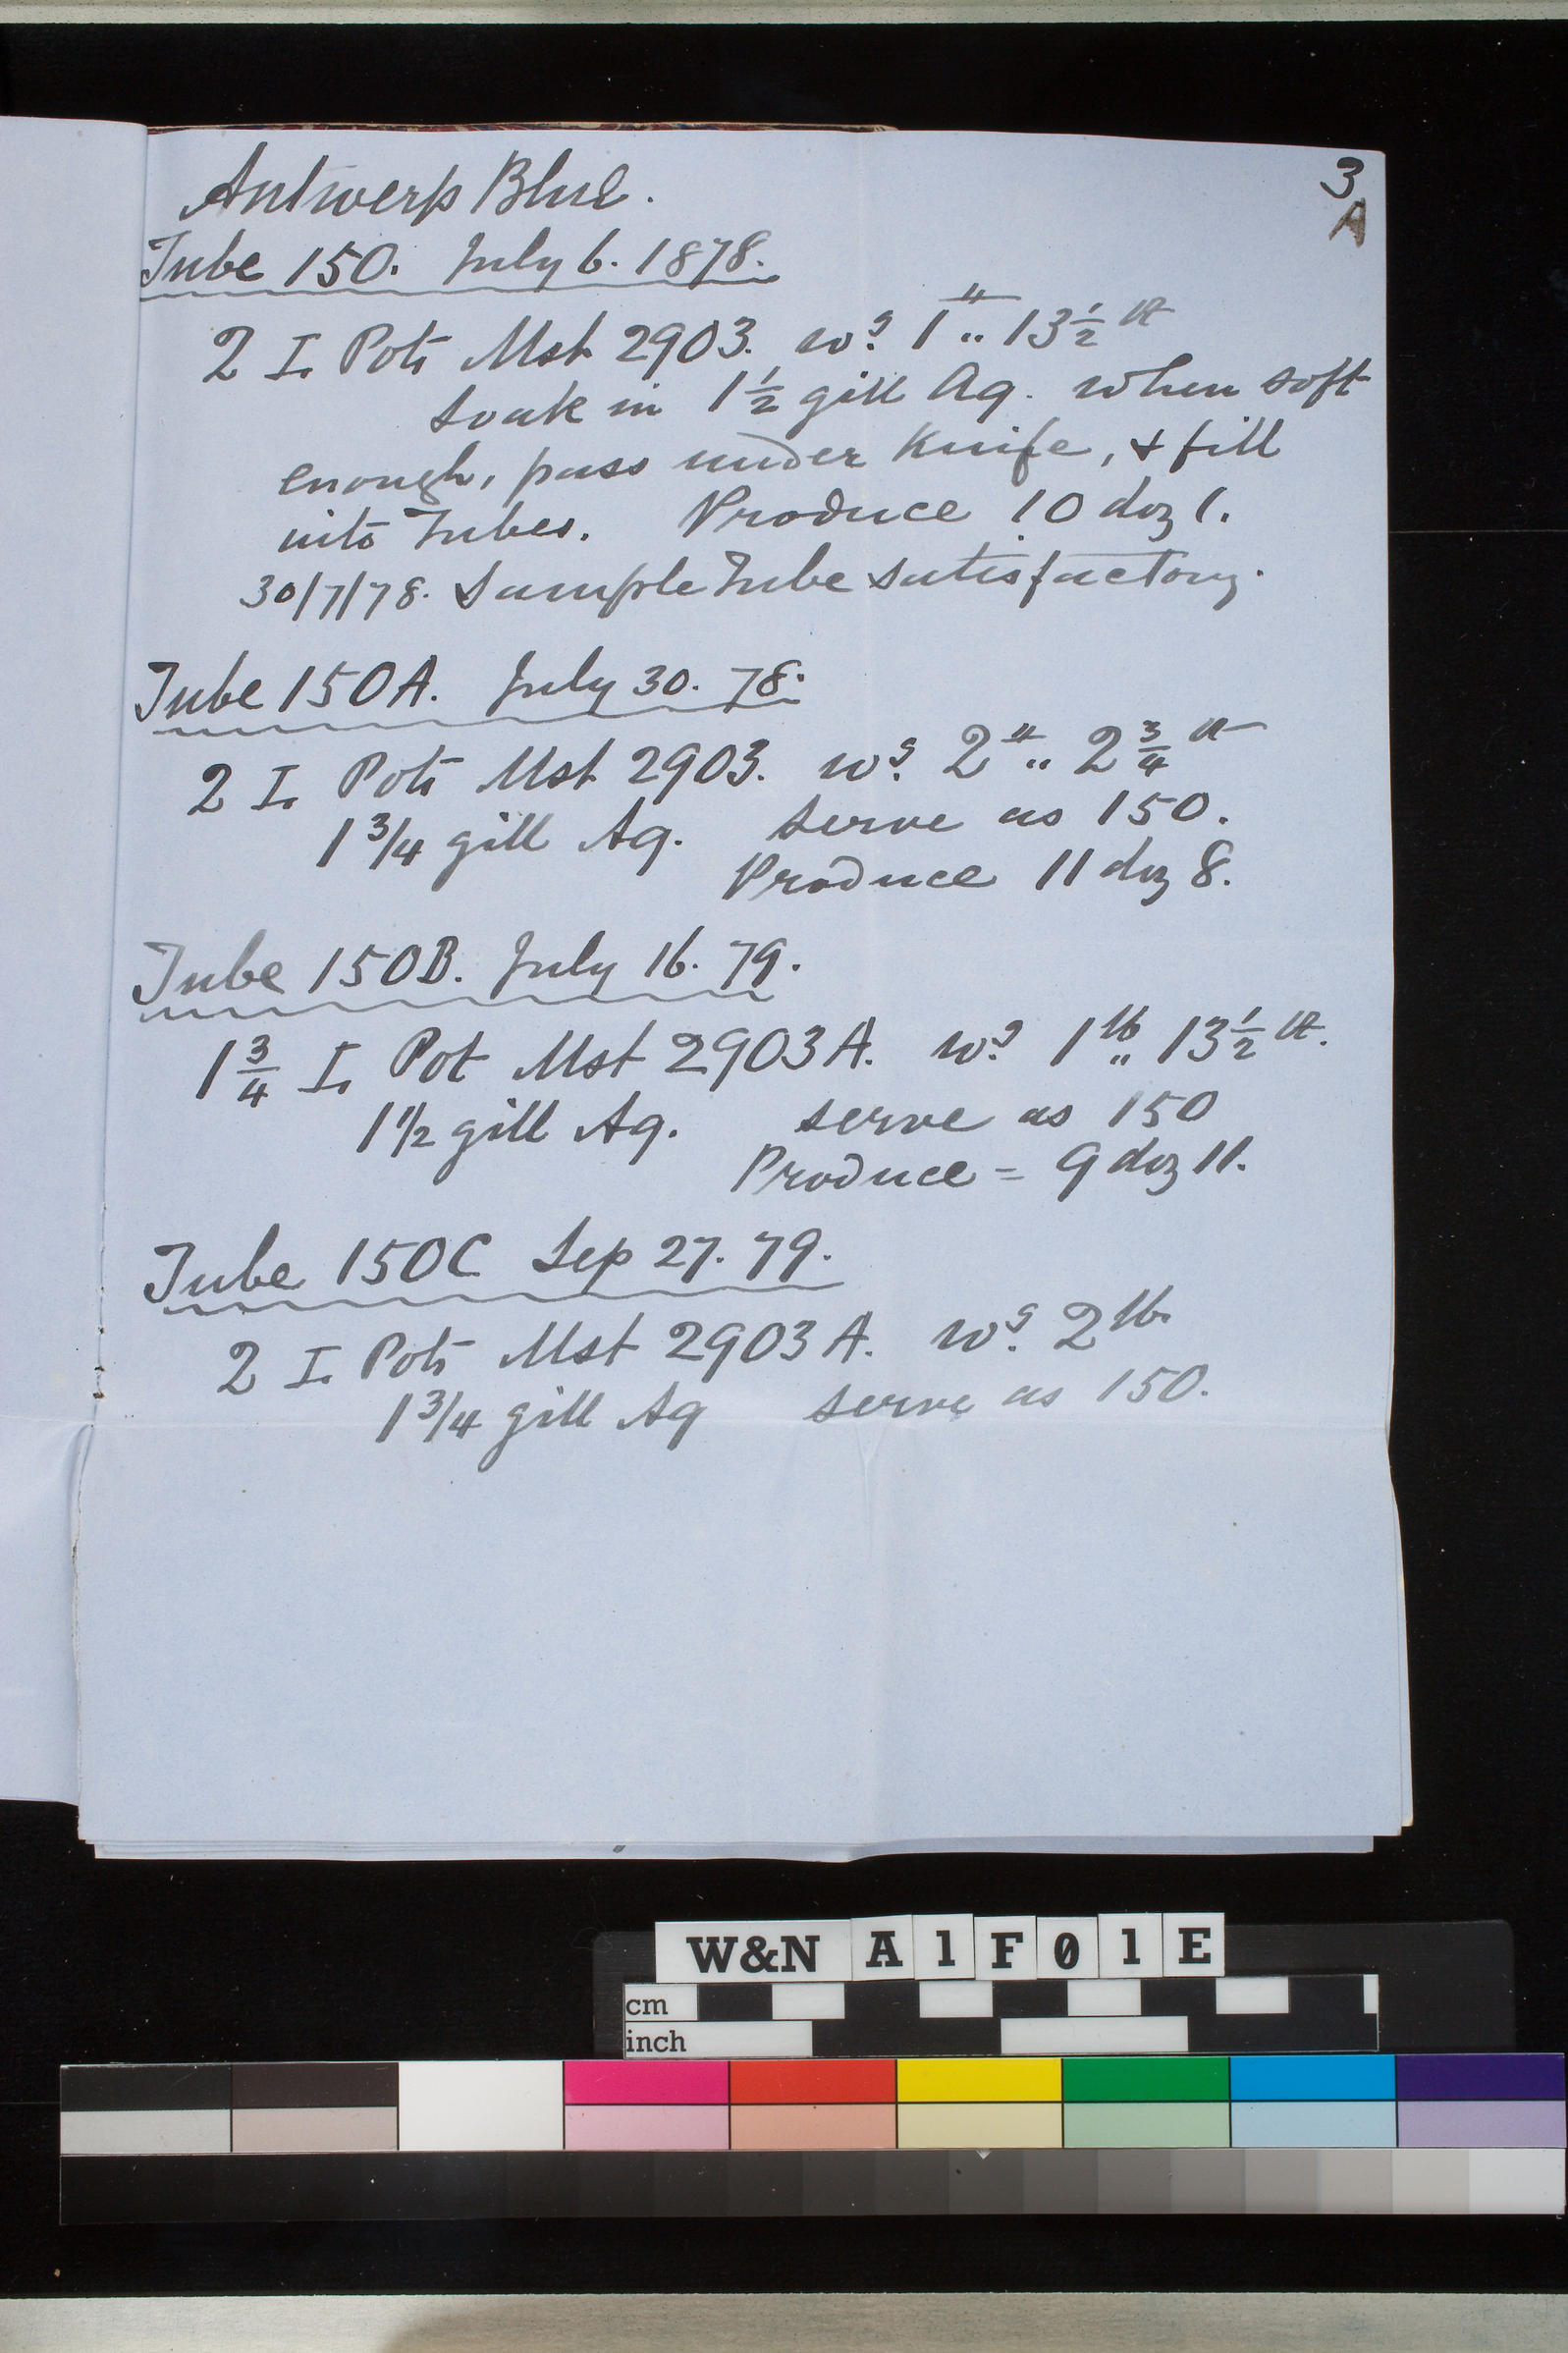 3
A
Antwerp Blue.
Tube 150. July 6. 1878.
2 I. Pots Mst 2903. wg. 1 lb .. 13½ oz
Soak in 1½ gill Aq. when soft
enough, pass under Knife, & fill
into Tubes. Produce 10 doz 1.
30/7/78. Sample Tube satisfactory.
Tube 150A. July 30. 78.
2 I. Pots Mst 2903. wg. 2 lb .. 2¾ oz
1 3/4 gill Aq. Serve as 150.
Produce 11 doz 8.
Tube 150B. July 16. 79.
1¾ I. Pot Mst 2903A. wg. 1 lb .. 13½ oz.
1 1/2 gill Aq. serve as 150
Produce = 9 doz 11.
Tube 150C Sep 27. 79.
2 I. Pots Mst 2903A. wg. 2 lb.
1 3/4 gill Aq serve as 150.
W&N A1F01E
cm
inch